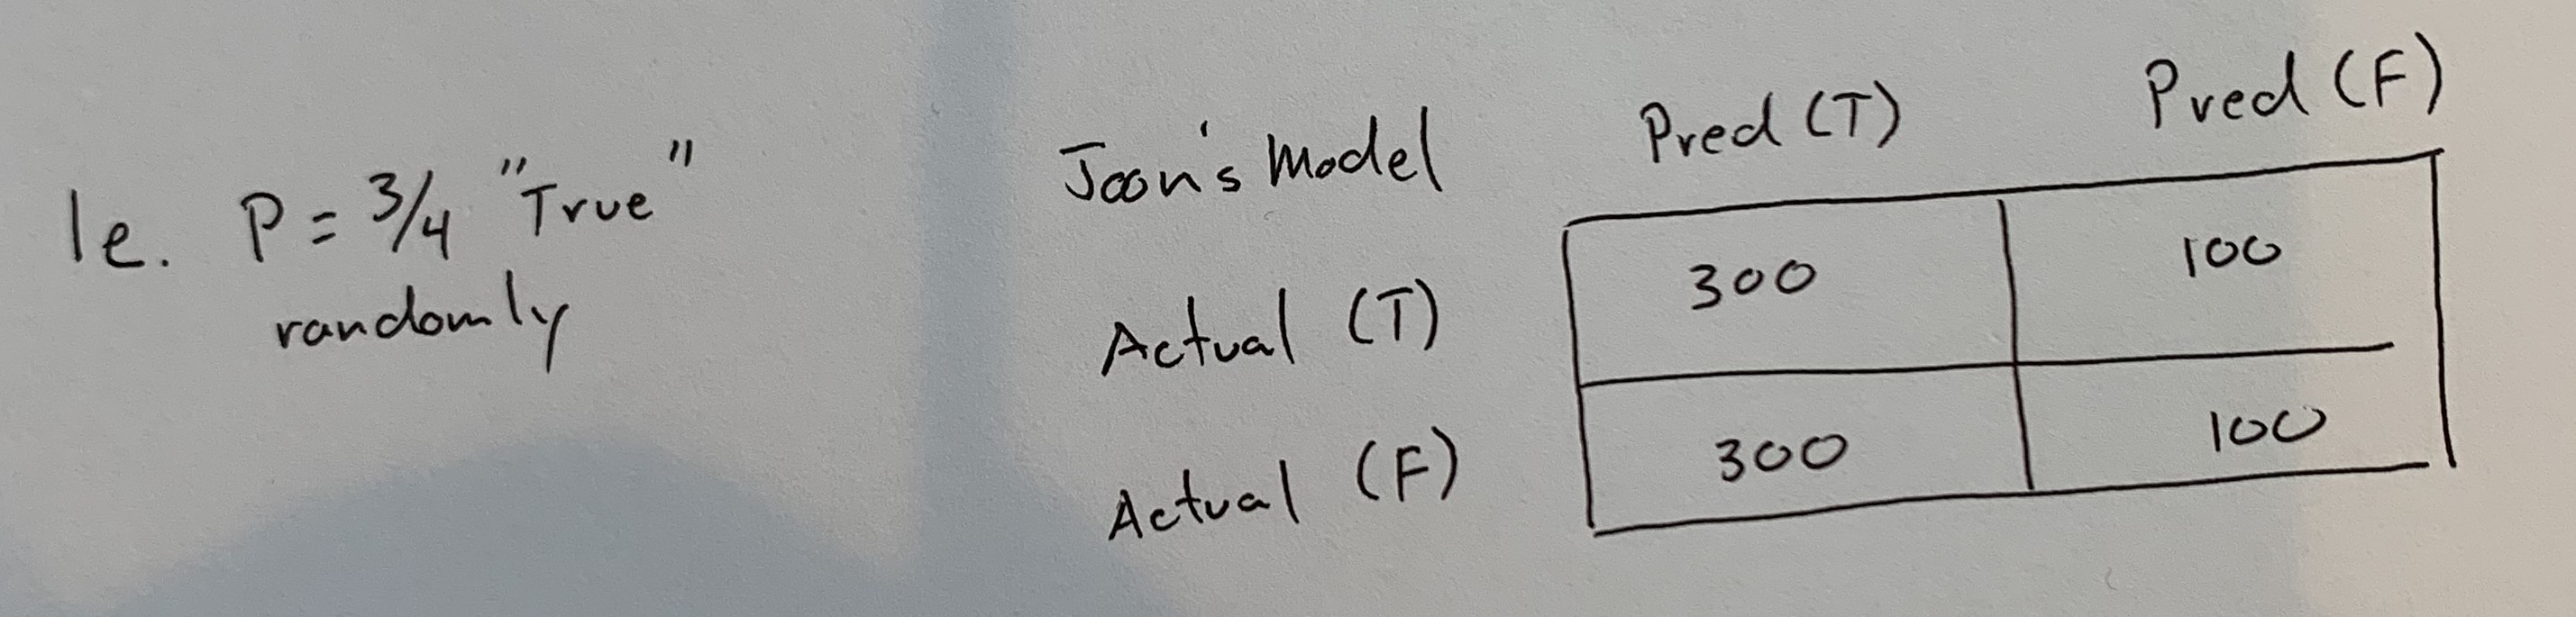 1e. P = 3/4 "True"
randomly
Joon's Model Pred (T) Pred (F)
Actual (T) 300 100
Actual (F) 300 100